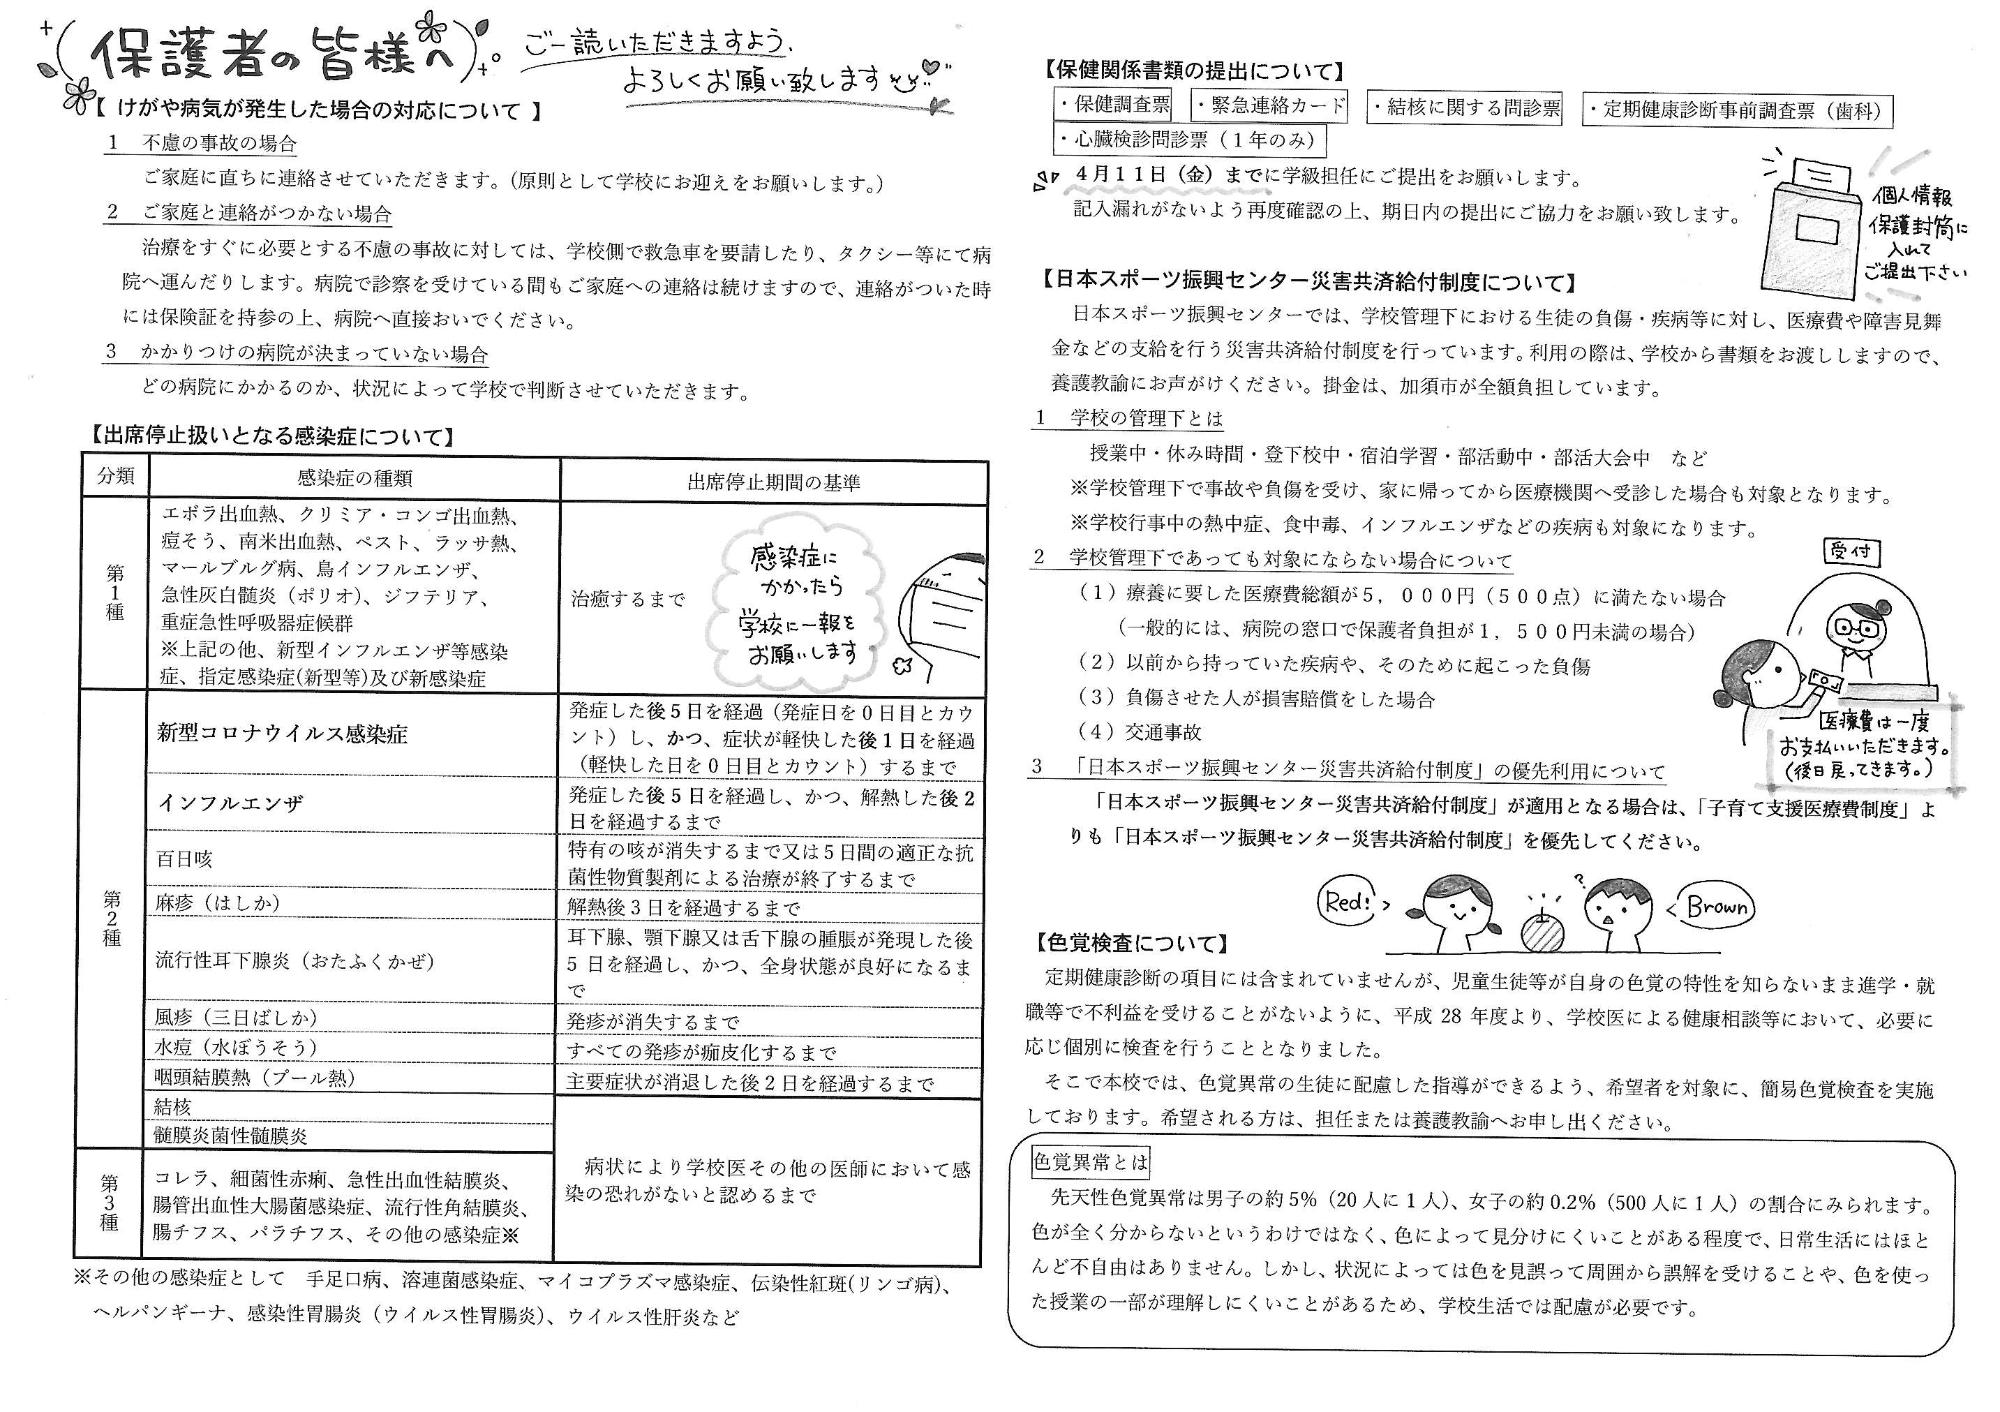 保護者の皆様へ
ご一読いただきますよう、
よろしくお願い致します
【 けがや病気が発生した場合の対応について 】
1　不慮の事故の場合
ご家庭に直ちに連絡させていただきます。(原則として学校にお迎えをお願いします。)
2　ご家庭と連絡がつかない場合
治療をすぐに必要とする不慮の事故に対しては、学校側で救急車を要請したり、タクシー等にて病
院へ運んだりします。病院で診察を受けている間もご家庭への連絡は続けますので、連絡がついた時
には保険証を持参の上、病院へ直接おいでください。
3　かかりつけの病院が決まっていない場合
どの病院にかかるのか、状況によって学校で判断させていただきます。
【出席停止扱いとなる感染症について】
分類　感染症の種類　出席停止期間の基準
第1種
エボラ出血熱、クリミア・コンゴ出血熱、
痘そう、南米出血熱、ペスト、ラッサ熱、
マールブルグ病、鳥インフルエンザ、
急性灰白髄炎（ポリオ）、ジフテリア、
重症急性呼吸器症候群
※上記の他、新型インフルエンザ等感染
症、指定感染症(新型等)及び新感染症
治癒するまで
感染症に
かかったら
学校に一報を
お願いします
第2種
新型コロナウイルス感染症
発症した後５日を経過（発症日を０日目とカウ
ント）し、かつ、症状が軽快した後１日を経過
（軽快した日を０日目とカウント）するまで
インフルエンザ
発症した後５日を経過し、かつ、解熱した後２
日を経過するまで
百日咳
特有の咳が消失するまで又は５日間の適正な抗
菌性物質製剤による治療が終了するまで
麻疹（はしか）
解熱後３日を経過するまで
流行性耳下腺炎（おたふくかぜ）
耳下腺、顎下腺又は舌下腺の腫脹が発現した後
５日を経過し、かつ、全身状態が良好になるま
で
風疹（三日ばしか）
発疹が消失するまで
水痘（水ぼうそう）
すべての発疹が痂皮化するまで
咽頭結膜熱（プール熱）
主要症状が消退した後２日を経過するまで
結核
髄膜炎菌性髄膜炎
第3種
コレラ、細菌性赤痢、急性出血性結膜炎、
腸管出血性大腸菌感染症、流行性角結膜炎、
腸チフス、パラチフス、その他の感染症※
病状により学校医その他の医師において感
染の恐れがないと認めるまで
※その他の感染症として　手足口病、溶連菌感染症、マイコプラズマ感染症、伝染性紅斑(リンゴ病)、
ヘルパンギーナ、感染性胃腸炎（ウイルス性胃腸炎）、ウイルス性肝炎など
【保健関係書類の提出について】
・保健調査票　・緊急連絡カード　・結核に関する問診票　・定期健康診断事前調査票（歯科）
・心臓検診問診票（１年のみ）
４月１１日（金）までに学級担任にご提出をお願いします。
記入漏れがないよう再度確認の上、期日内の提出にご協力をお願い致します。
個人情報
保護封筒に
入れて
ご提出下さい
【日本スポーツ振興センター災害共済給付制度について】
日本スポーツ振興センターでは、学校管理下における生徒の負傷・疾病等に対し、医療費や障害見舞
金などの支給を行う災害共済給付制度を行っています。利用の際は、学校から書類をお渡ししますので、
養護教諭にお声がけください。掛金は、加須市が全額負担しています。
1　学校の管理下とは
授業中・休み時間・登下校中・宿泊学習・部活動中・部活大会中　など
※学校管理下で事故や負傷を受け、家に帰ってから医療機関へ受診した場合も対象となります。
※学校行事中の熱中症、食中毒、インフルエンザなどの疾病も対象になります。
2　学校管理下であっても対象にならない場合について
（１）療養に要した医療費総額が５，０００円（５００点）に満たない場合
（一般的には、病院の窓口で保護者負担が１，５００円未満の場合）
（２）以前から持っていた疾病や、そのために起こった負傷
（３）負傷させた人が損害賠償をした場合
（４）交通事故
受付
医療費は一度
お支払いいただきます。
（後日戻ってきます。）
3　「日本スポーツ振興センター災害共済給付制度」の優先利用について
「日本スポーツ振興センター災害共済給付制度」が適用となる場合は、「子育て支援医療費制度」よ
りも「日本スポーツ振興センター災害共済給付制度」を優先してください。
Red!
?
Brown
【色覚検査について】
定期健康診断の項目には含まれていませんが、児童生徒等が自身の色覚の特性を知らないまま進学・就
職等で不利益を受けることがないように、平成 28 年度より、学校医による健康相談等において、必要に
応じ個別に検査を行うこととなりました。
そこで本校では、色覚異常の生徒に配慮した指導ができるよう、希望者を対象に、簡易色覚検査を実施
しております。希望される方は、担任または養護教諭へお申し出ください。
色覚異常とは
先天性色覚異常は男子の約 5%（20 人に 1 人）、女子の約 0.2%（500 人に 1 人）の割合にみられます。
色が全く分からないというわけではなく、色によって見分けにくいことがある程度で、日常生活にはほと
んど不自由はありません。しかし、状況によっては色を見誤って周囲から誤解を受けることや、色を使っ
た授業の一部が理解しにくいことがあるため、学校生活では配慮が必要です。